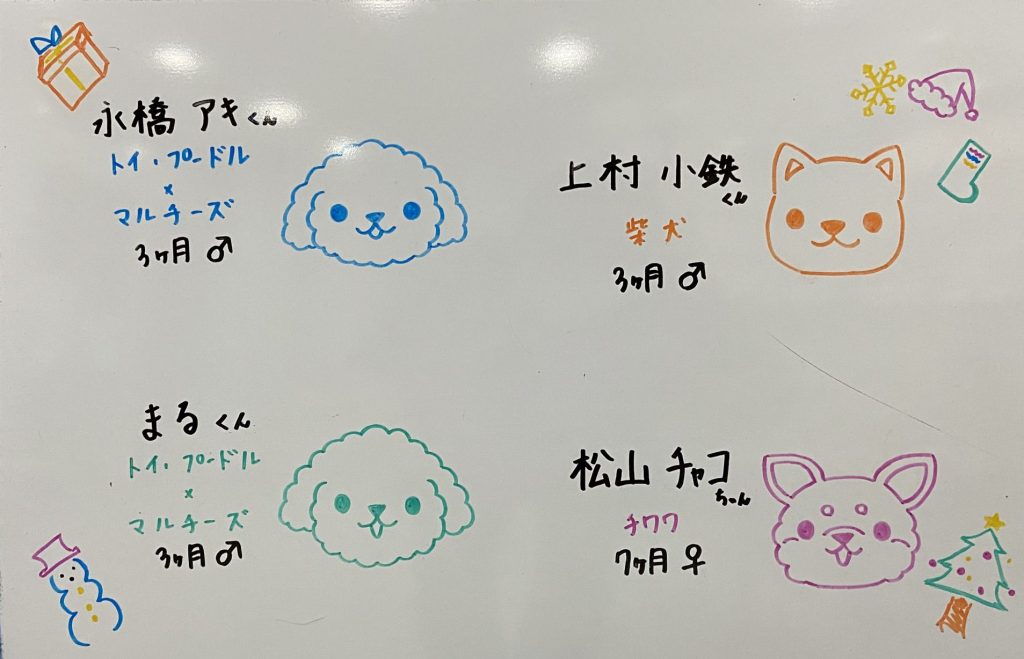 永橋 アキくん
トイ・プードル
×
マルチーズ
3ヶ月 ♂
上村 小鉄くん
柴犬
3ヶ月 ♂
まるくん
トイ・プードル
×
マルチーズ
3ヶ月 ♂
松山 チャコちゃん
チワワ
7ヶ月 ♀